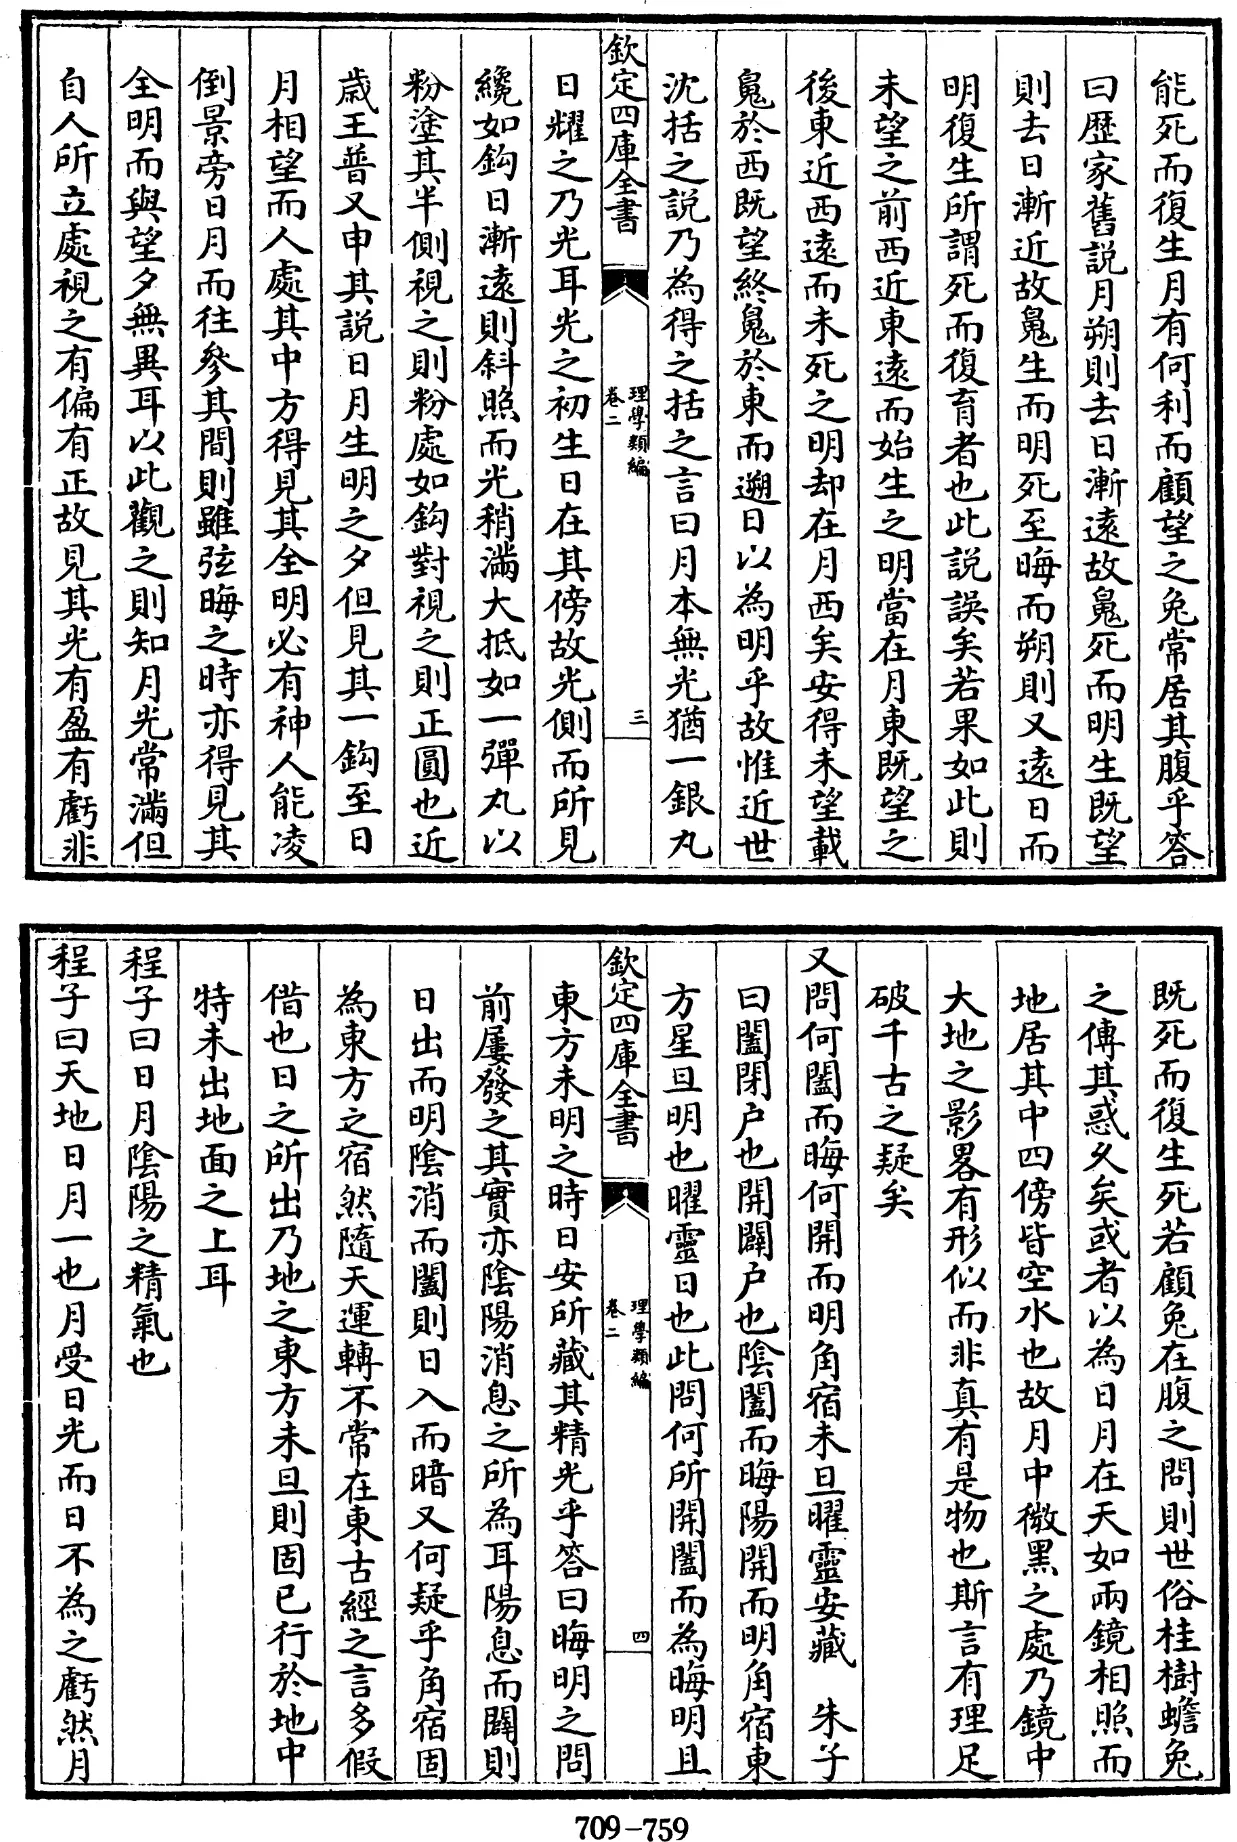 能死而復生月有何利而顧望之兔常居其腹乎答
曰歴家舊說月朔則去日漸遠故鬼死而明生既望
則去日漸近故鬼生而明死至晦而朔則又遠日而
明復生所謂死而復育者也此說誤矣若果如此則
未望之前西近東遠而始生之明當在月東既望之
後東近西遠而未死之明却在月西矣安得未望載
鬼於西既望終鬼於東而遡日以為明乎故惟近世
沈括之說乃為得之括之言曰月本無光猶一銀丸
欽定四庫全書
理學類編
卷二
三
日耀之乃光耳光之初生日在其傍故光側而所見
纔如鈎日漸遠則斜照而光稍滿大抵如一彈丸以
粉塗其半側視之則粉處如鈎對視之則正圓也近
歳王普又申其說日月生明之夕但見其一鈎至日
月相望而人處其中方得見其全明必有神人能凌
倒景旁日月而往參其間則雖弦晦之時亦得見其
全明而與望夕無異耳以此觀之則知月光常滿但
自人所立處視之有偏有正故見其光有盈有虧非
既死而復生死若顧兔在腹之問則世俗桂樹蟾兔
之傳其惑乆矣或者以為日月在天如兩鏡相照而
地居其中四傍皆空水也故月中微黑之處乃鏡中
大地之影畧有形似而非真有是物也斯言有理足
破千古之疑矣
又問何闔而晦何開而明角宿未旦曜靈安藏 朱子
曰闔閉户也開闢户也陰闔而晦陽開而明角宿東
方星旦明也曜靈日也此問何所開闔而為晦明且
欽定四庫全書
理學類編
卷二
四
東方未明之時日安所藏其精光乎答曰晦明之問
前屢發之其實亦陰陽消息之所為耳陽息而闢則
日出而明陰消而闔則日入而暗又何疑乎角宿固
為東方之宿然隨天運轉不常在東古經之言多假
借也日之所出乃地之東方未旦則固已行於地中
特未出地面之上耳
程子曰日月陰陽之精氣也
程子曰天地日月一也月受日光而日不為之虧然月
709-759